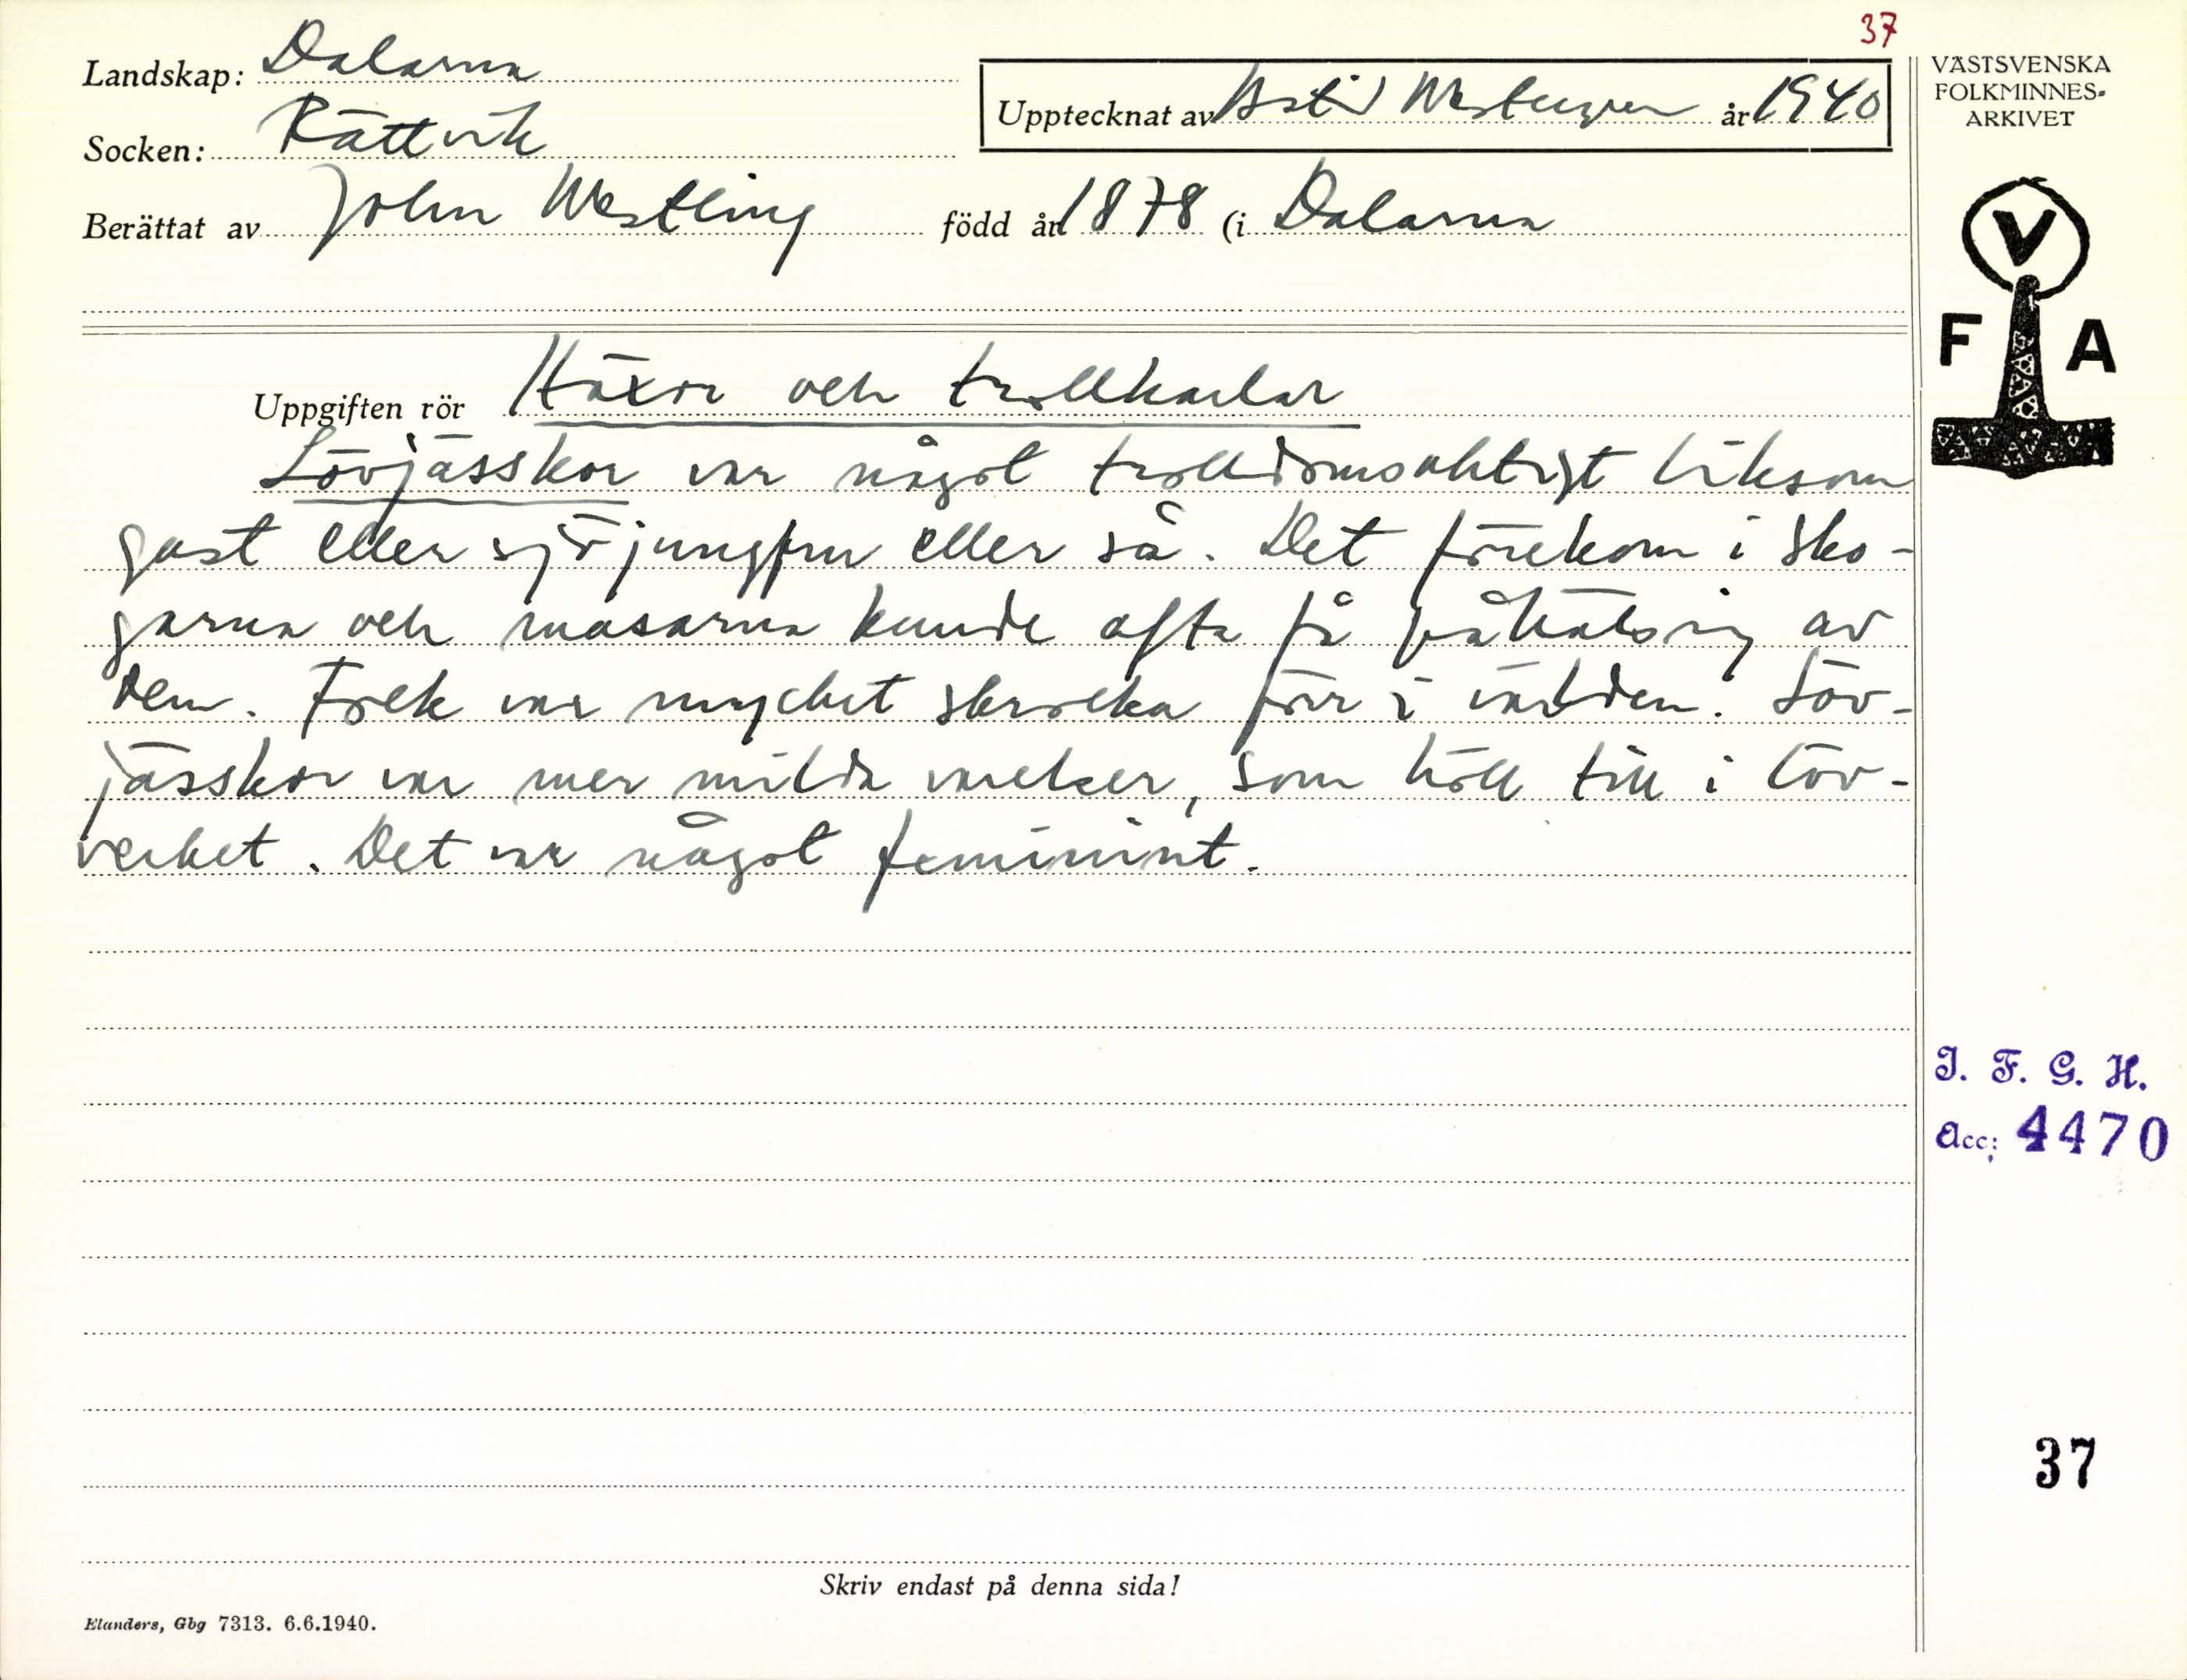 37
Landskap: Dalarna
Upptecknat av Astrid år 1940
VÄSTSVENSKA
FOLKMINNES-
ARKIVET
Socken: Rättvik
Berättat av John Westling född år 1878 (i Dalarna
V
F A
Uppgiften rör Häxor och trollkarlar
Lövjässkor var något trolldomsaktigt liksom
gast eller sjöjungfru eller så. Det förekom i sko-
garna och masarna kunde ofta få påhälsning av
dem. Folk var mycket skrocka förr i världen. Löv-
jässkor var mer milda varelser, som höll till i löv-
verket. Det var något feminint.
I. F. G. H.
Acc; 4470
37
Skriv endast på denna sida!
Elanders, Gbg 7313. 6.6.1940.